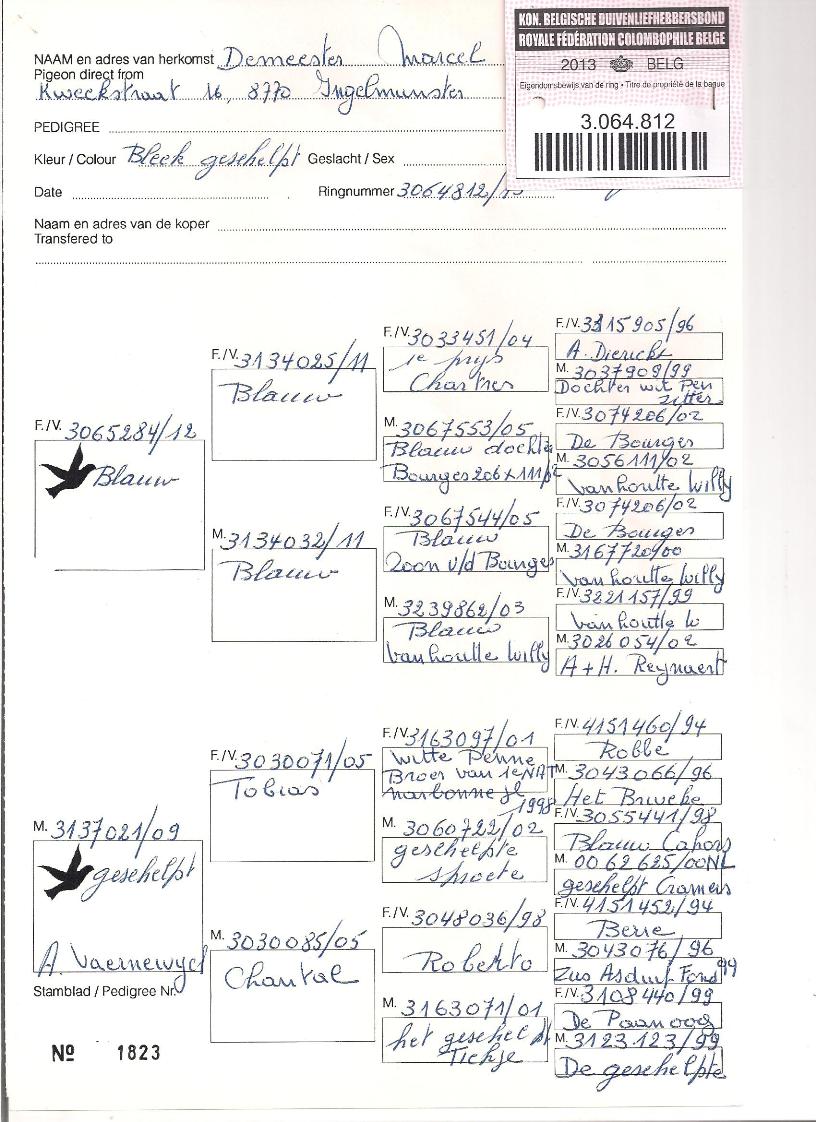 KON. BELGISCHE DUIVENLIEFHEBBERSBOND
ROYALE FÉDÉRATION COLOMBOPHILE BELGE
2013 BELG
Eigendomsbewijs van de ring - Titre de propriété de la bague
3.064.812
NAAM en adres van herkomst Demeester Marcel
Pigeon direct from
Kweekstraat 16, 8770 Ingelmunster
PEDIGREE
Kleur / Colour Bleek geschelpt Geslacht / Sex
Date Ringnummer 3064812/
Naam en adres van de koper
Transfered to
F./V. 3065284/12
Blauw
F./V. 3134025/11
Blauw
M. 3134032/11
Blauw
F./V. 3033451/04
1e prijs
Chartres
M. 3067553/05
Blauw dochter
Bourges 206 x 111/02
F./V. 3067544/05
Blauw
Zoon v/d Bourges
M. 3239862/03
Blauw
Vanhoutte Willy
F./V. 3315905/96
A. Diericks
M. 3037909/99
Dochter wit Pen
zitter
F./V. 3074206/02
De Bourges
M. 3056111/02
Vanhoutte Willy
F./V. 3074206/02
De Bourges
M. 3167720/00
Vanhoutte Willy
F./V. 3221157/99
Vanhoutte W
M. 3026054/02
A + H. Reynaert
M. 3137021/09
geschelpt
A. Vaernewyck
F./V. 3030071/05
Tobias
M. 3030085/05
Chantal
F./V. 3163097/01
Witte Penne
Broer van 1e NAT
narbonne
1998
M. 3060722/02
geschelpte
sproete
F./V. 3048036/98
Roberto
M. 3163071/01
het geschelpt
Tichje
F./V. 4151460/94
Robbe
M. 3043066/96
Het Bruveke
F./V. 3055441/98
Blauw Cahors
M. 0062625/00NL
geschelpt Cramers
F./V. 4151452/94
Berre
M. 3043076/96
Zus Asduif Fond 99
F./V. 3108440/99
De Paanoog
M. 3123123/99
De geschelpte
Stamblad / Pedigree Nr.
Nº 1823